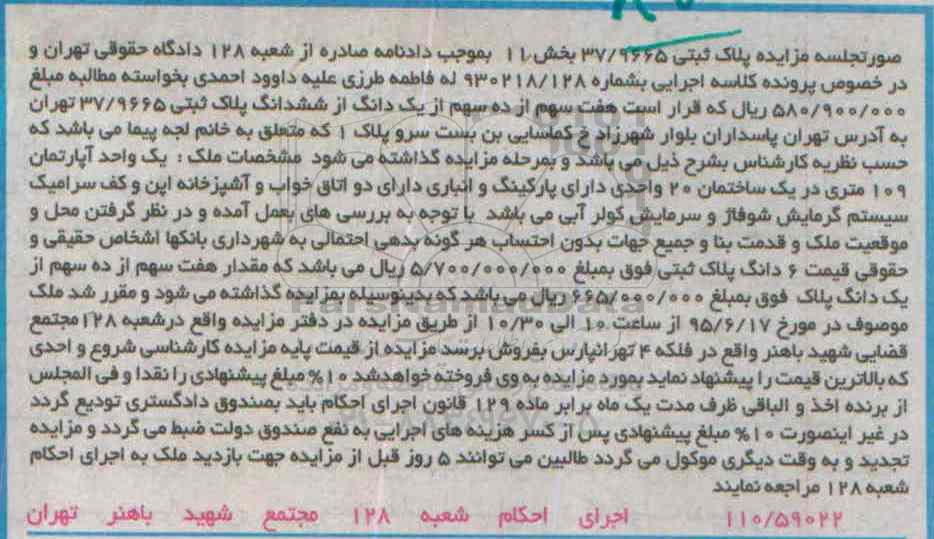 صورتجلسه مزایده پلاک ثبتی ۳۷/۹۶۶۵ بخش ۱۱ بموجب دادنامه صادره از شعبه ۱۲۸ دادگاه حقوقی تهران و
در خصوص پرونده کلاسه اجرایی بشماره ۹۳۰۲۱۸/۱۲۸ له فاطمه طرزی علیه داوود احمدی بخواسته مطالبه مبلغ
۵۸۰/۹۰۰/۰۰۰ ریال که قرار است هفت سهم از ده سهم از یک دانگ از ششدانگ پلاک ثبتی ۳۷/۹۶۶۵ تهران
به آدرس تهران پاسداران بلوار شهرزاد خ کماسایی بن بست سرو پلاک ۱ که متعلق به خانم لجه پیما می باشد که
حسب نظریه کارشناس بشرح ذیل می باشد و بمرحله مزایده گذاشته می شود مشخصات ملک : یک واحد آپارتمان
۱۰۹ متری در یک ساختمان ۲۰ واحدی دارای پارکینگ و انباری دارای دو اتاق خواب و آشپزخانه اپن و کف سرامیک
سیستم گرمایش شوفاژ و سرمایش کولر آبی می باشد با توجه به بررسی های بعمل آمده و در نظر گرفتن محل و
موقعیت ملک و قدمت بنا و جمیع جهات بدون احتساب هر گونه بدهی احتمالی به شهرداری بانکها اشخاص حقیقی و
حقوقی قیمت ۶ دانگ پلاک ثبتی فوق بمبلغ ۵/۷۰۰/۰۰۰/۰۰۰ ریال می باشد که مقدار هفت سهم از ده سهم از
یک دانگ پلاک فوق بمبلغ ۶۶۵/۰۰۰/۰۰۰ ریال می باشد که بدینوسیله بمزایده گذاشته می شود و مقرر شد ملک
موصوف در مورخ ۹۵/۶/۱۷ از ساعت ۱۰ الی ۱۰/۳۰ از طریق مزایده در دفتر مزایده واقع درشعبه ۱۲۸ مجتمع
قضایی شهید باهنر واقع در فلکه ۴ تهرانپارس بفروش برسد مزایده از قیمت پایه مزایده کارشناسی شروع و احدی
که بالاترین قیمت را پیشنهاد نماید بمورد مزایده به وی فروخته خواهدشد ۱۰% مبلغ پیشنهادی را نقدا و فی المجلس
از برنده اخذ و الباقی ظرف مدت یک ماه برابر ماده ۱۲۹ قانون اجرای احکام باید بصندوق دادگستری تودیع گردد
در غیر اینصورت ۱۰% مبلغ پیشنهادی پس از کسر هزینه های اجرایی به نفع صندوق دولت ضبط می گردد و مزایده
تجدید و به وقت دیگری موکول می گردد طالبین می توانند ۵ روز قبل از مزایده جهت بازدید ملک به اجرای احکام
شعبه ۱۲۸ مراجعه نمایند
۱۱۰/۵۹۰۲۲ اجرای احکام شعبه ۱۲۸ مجتمع شهید باهنر تهران
ParsNamadData